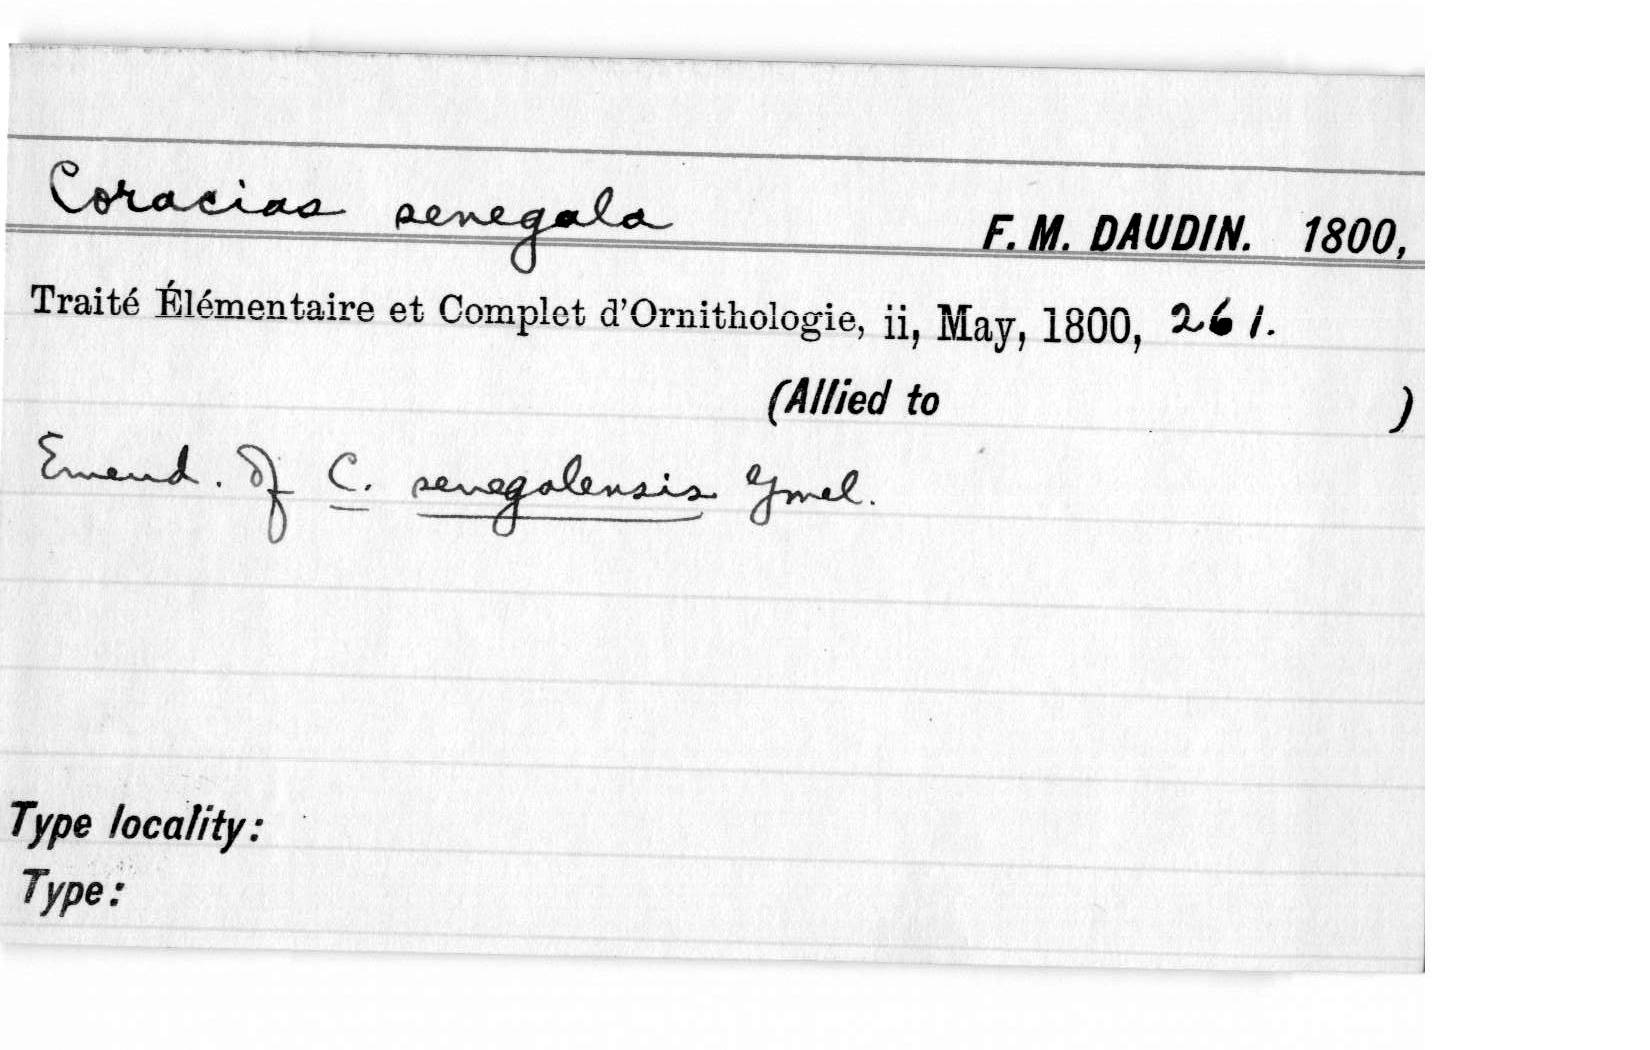 Coracias senegala F. M. DAUDIN. 1800,
Traité Élémentaire et Complet d'Ornithologie, ii, May, 1800, 261.
(Allied to )
Emend. of C. senegalensis Gmel.
Type locality:
Type: